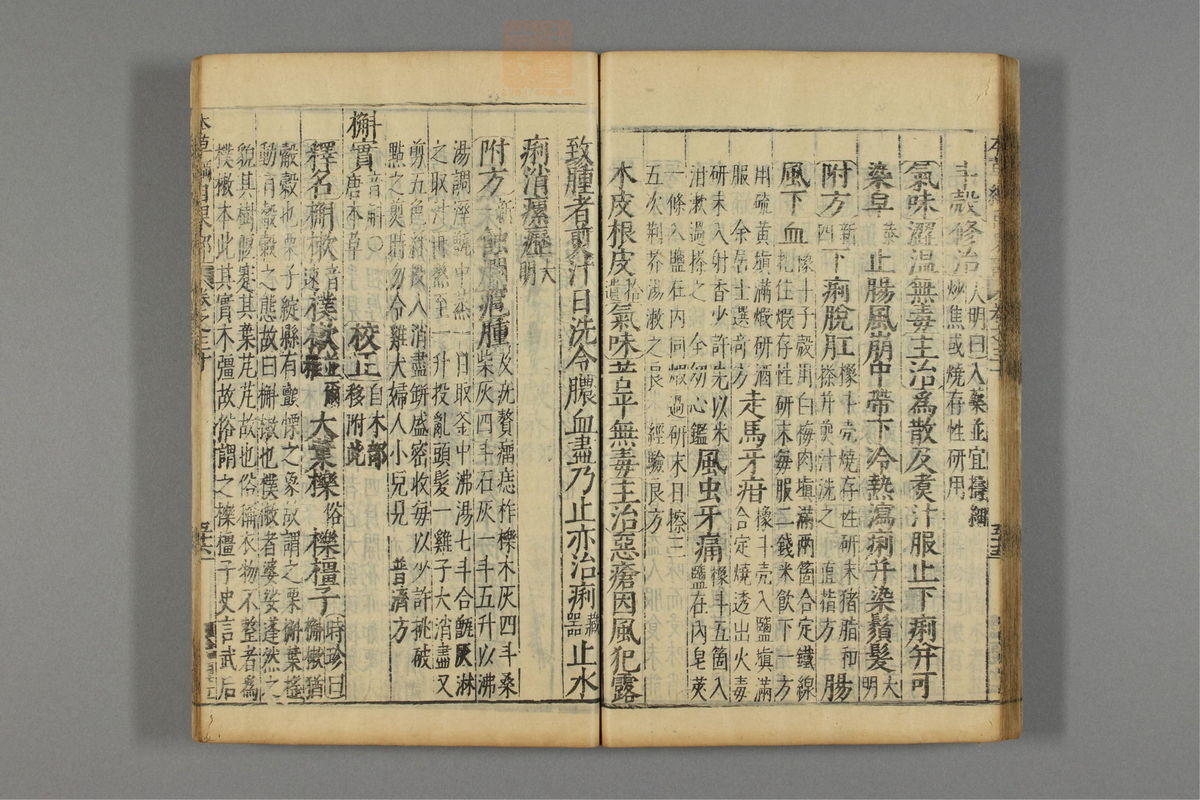 斗殼修治大明曰入藥並宜擣細
炒焦或燒存性研用
氣味澀溫無毒主治爲散及煑汁服止下痢幷可
染皁 止腸風崩中帶下冷熱瀉痢幷染鬚髮大明
附方 下痢脫肛橡斗殼燒存性研末猪脂和
搽幷煎汁洗之 直指方 腸
風下血橡斗子殼用白梅肉塡滿兩箇合定鐵線
札住煆存性研末每服二錢米飮下一方
用硫黃塡滿煆研酒
服 余居士選奇方 走馬牙疳橡斗殼入鹽塡滿
合定燒透出火毒
研末入射香少許先以米
泔漱過搽之 全幼心鑑 風虫牙痛橡斗五箇入
鹽在內皂莢
一條入鹽在內同煆過研末日擦三
五次荆芥湯漱之良 經驗良方
木皮根皮拾遺氣味苦平無毒主治惡瘡因風犯露
致腫者煎汁日洗令膿血盡乃止亦治痢藏器止水
痢消瘰癧大明
附方 蝕爛癰腫及疣贅瘤痣柞櫟木灰四斗桑
柴灰四斗石灰一斗五升以沸
湯調濕甑中蒸一日取釜中沸湯七斗合甑灰淋
之取汁再熬至一升投亂頭髮一雞子大消盡又
剪五色綵投入消盡缾盛密收每以少許挑破
點之煎時勿令雞犬婦人小兒見 普濟方
槲實音斛○唐本草 校正自木部移附此
釋名槲樕音速樸樕並爾雅大葉櫟俗櫟橿子時珍曰
槲樕猶
觳觫也栗子綻縣有顫慄之象故謂之栗槲葉搖
動有觳觫之態故曰槲樕也樸樕者婆娑蓬然之
貌其樹偃蹇其葉芃芃故也俗稱衣物不整者爲
樸樕本此其實木彊故俗謂之櫟橿子史言武后